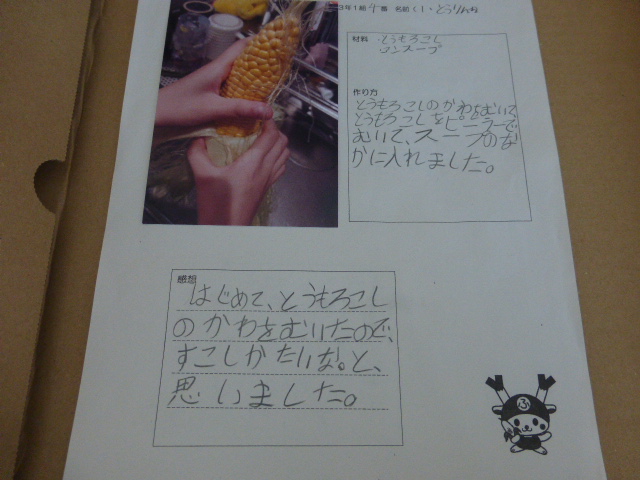 3年1組 番 名前
材料 とうもろこし
コンスープ
作り方
とうもろこしのかわをむいて、
とうもろこしをピーラーで、
むいて、スープのな
かに入れました。
感想
はじめて、とうもろこし
のかわをむいたので、
すこしかたいな。と、
思いました。
ふ